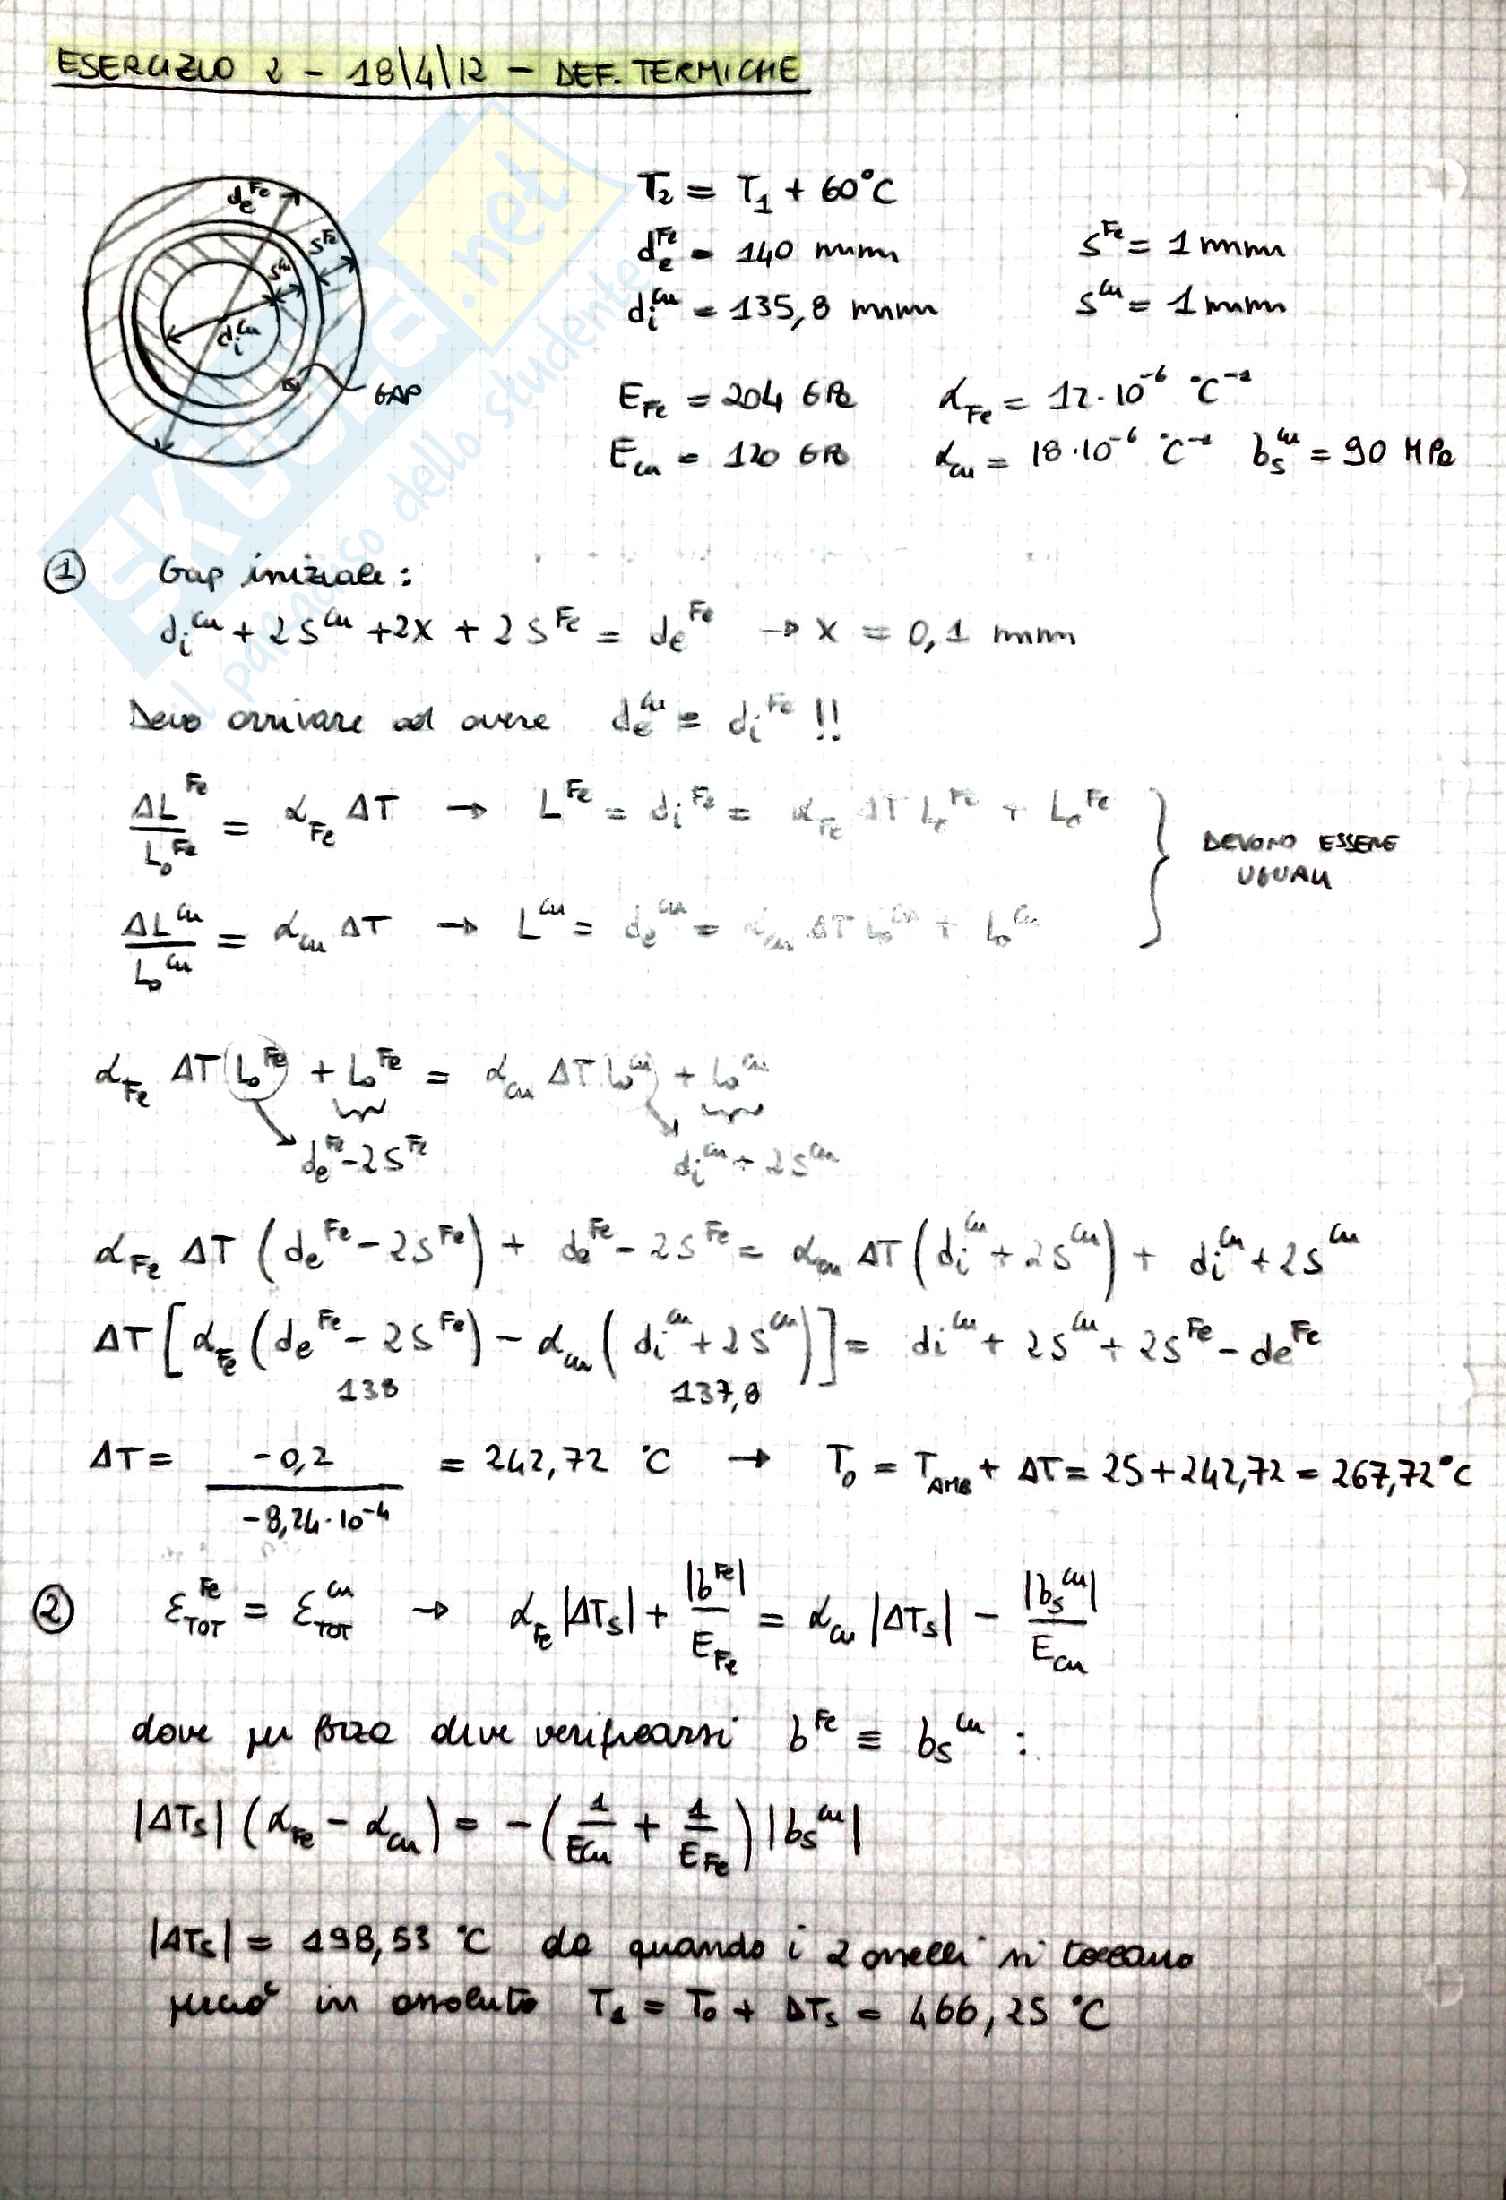 ESERCIZIO 2 - 18/4/12 - DEF. TERMICHE
T₂ = T₁ + 60°C
dₑ^Fe = 140 mm
s^Fe = 1 mm
dᵢ^Cu = 135,8 mm
s^Cu = 1 mm
dₑ^Fe
s^Fe
s^Cu
dᵢ^Cu
GAP
E_Fe = 204 GPa α_Fe = 12·10⁻⁶ °C⁻¹
E_Cu = 120 GPa α_Cu = 18·10⁻⁶ °C⁻¹ b_s^Cu = 90 MPa
SKUOLA.net
il paradiso dello studente
① Gap iniziale:
dᵢ^Cu + 2s^Cu + 2x + 2s^Fe = dₑ^Fe → x = 0,1 mm
Devo arrivare ad avere dₑ^Cu = dᵢ^Fe !!
ΔL^Fe / L₀^Fe = α_Fe ΔT → L^Fe = dᵢ^Fe = α_Fe ΔT L₀^Fe + L₀^Fe
DEVONO ESSERE
UGUALI
ΔL^Cu / L₀^Cu = α_Cu ΔT → L^Cu = dₑ^Cu = α_Cu ΔT L₀^Cu + L₀^Cu
α_Fe ΔT (L₀^Fe) + L₀^Fe = α_Cu ΔT (L₀^Cu) + L₀^Cu
dₑ^Fe - 2s^Fe dᵢ^Cu + 2s^Cu
α_Fe ΔT (dₑ^Fe - 2s^Fe) + dₑ^Fe - 2s^Fe = α_Cu ΔT (dᵢ^Cu + 2s^Cu) + dᵢ^Cu + 2s^Cu
ΔT [α_Fe (dₑ^Fe - 2s^Fe) - α_Cu (dᵢ^Cu + 2s^Cu)] = dᵢ^Cu + 2s^Cu + 2s^Fe - dₑ^Fe
138 137,8
ΔT = -0,2 / -8,24·10⁻⁴ = 242,72 °C → T₀ = T_AMB + ΔT = 25 + 242,72 = 267,72°C
② ε_TOT^Fe = ε_TOT^Cu → α_Fe |ΔT_s| + |b^Fe| / E_Fe = α_Cu |ΔT_s| - |b_s^Cu| / E_Cu
dove per forza deve verificarsi b^Fe ≡ b_s^Cu :
|ΔT_s| (α_Fe - α_Cu) = - (1/E_Cu + 1/E_Fe) |b_s^Cu|
|ΔT_s| = 198,53 °C da quando i 2 anelli si toccano
perciò in assoluto T₁ = T₀ + ΔT_s = 466,25 °C